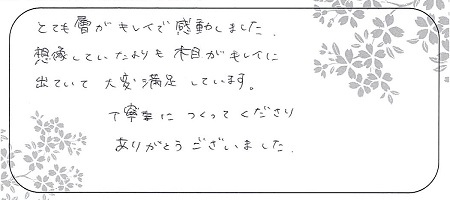 とても層がキレイで感動しました.
想像していたよりも木目がキレイに
出ていて大変満足しています。
丁寧につくってくださり
ありがとうございました.